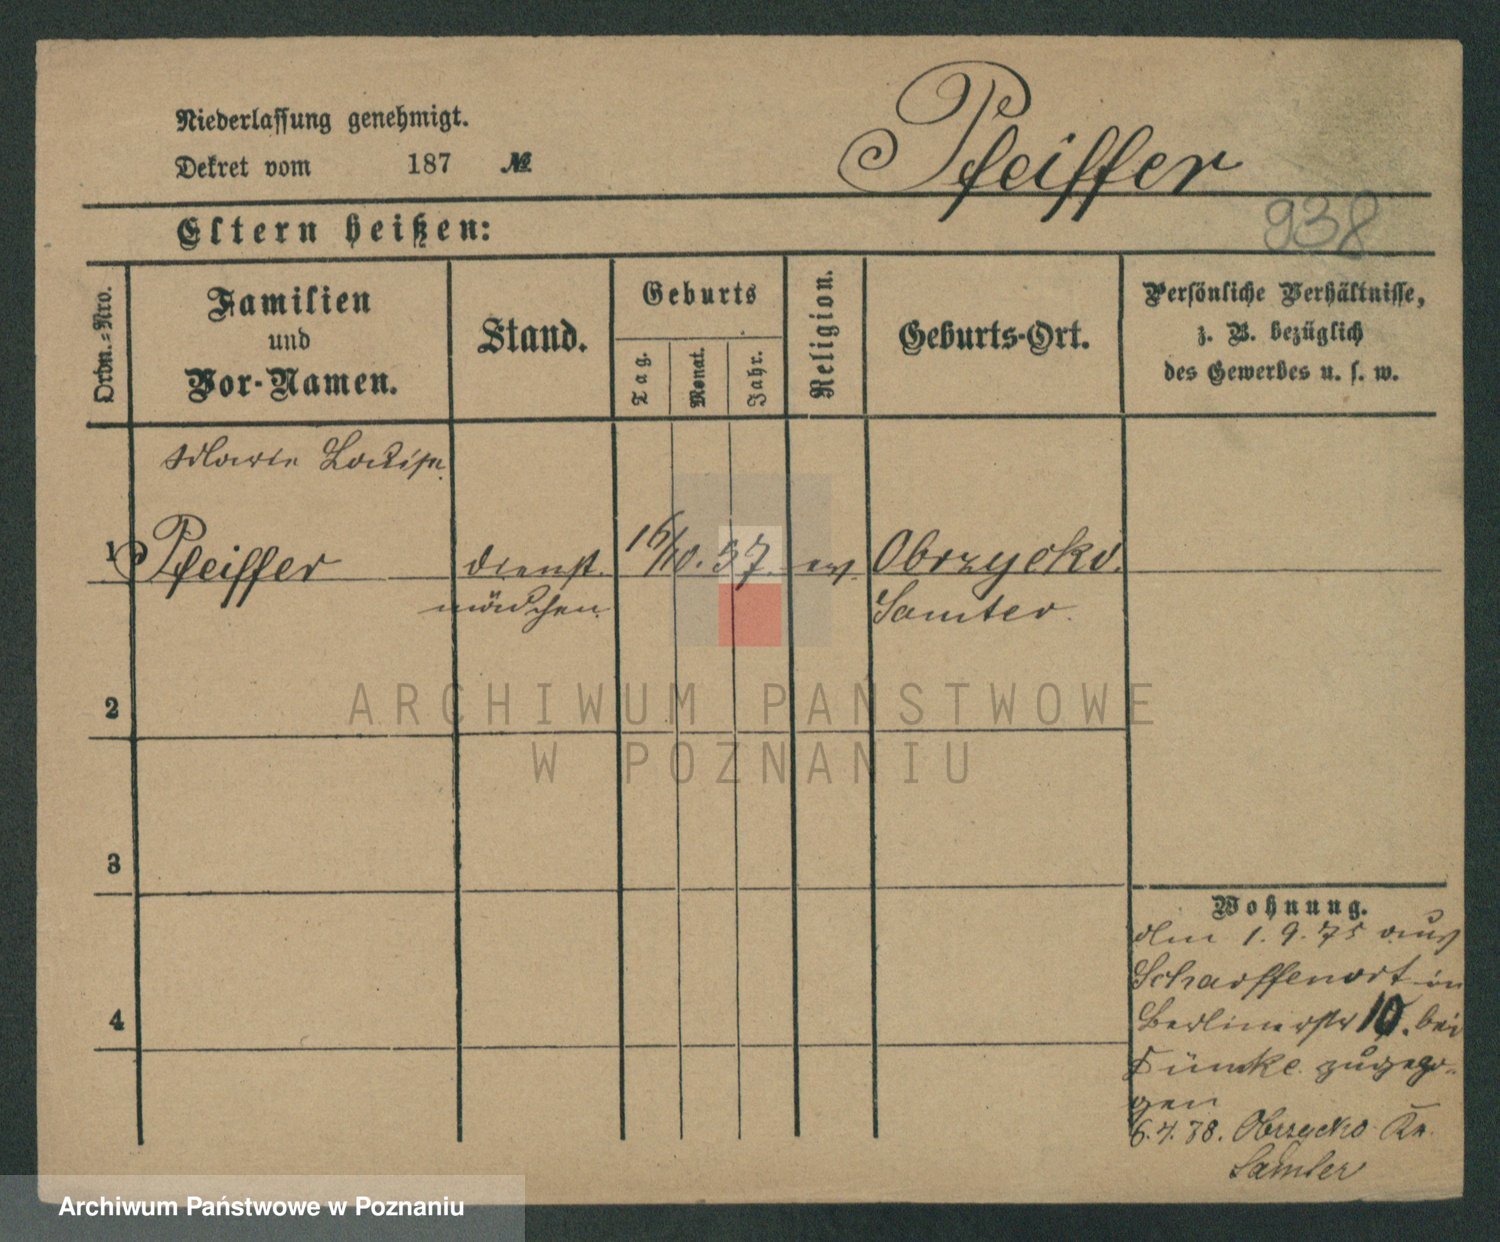 Niederlassung genehmigt.
Dekret vom 187 №
Pfeiffer
938
Eltern heißen:
Ordn.-Nro.
Familien
und
Vor-Namen.
Stand.
Geburts
Tag.
Monat.
Jahr.
Religion.
Geburts-Ort.
Persönliche Verhältnisse,
z. B. bezüglich
des Gewerbes u. s. w.
Marie Louise
1 Pfeiffer Dienst- 16/10. 57. ev. Obrzycko.
mädchen Samter.
2
ARCHIWUM PAŃSTWOWE
W POZNANIU
3
Wohnung.
den 1. 9. 75 aus
Scharffenort in
Berlinerstr 10. bei
Fünke zugezo-
gen
4
6. 4. 78. Obrzycko Kr.
Samter
Archiwum Państwowe w Poznaniu